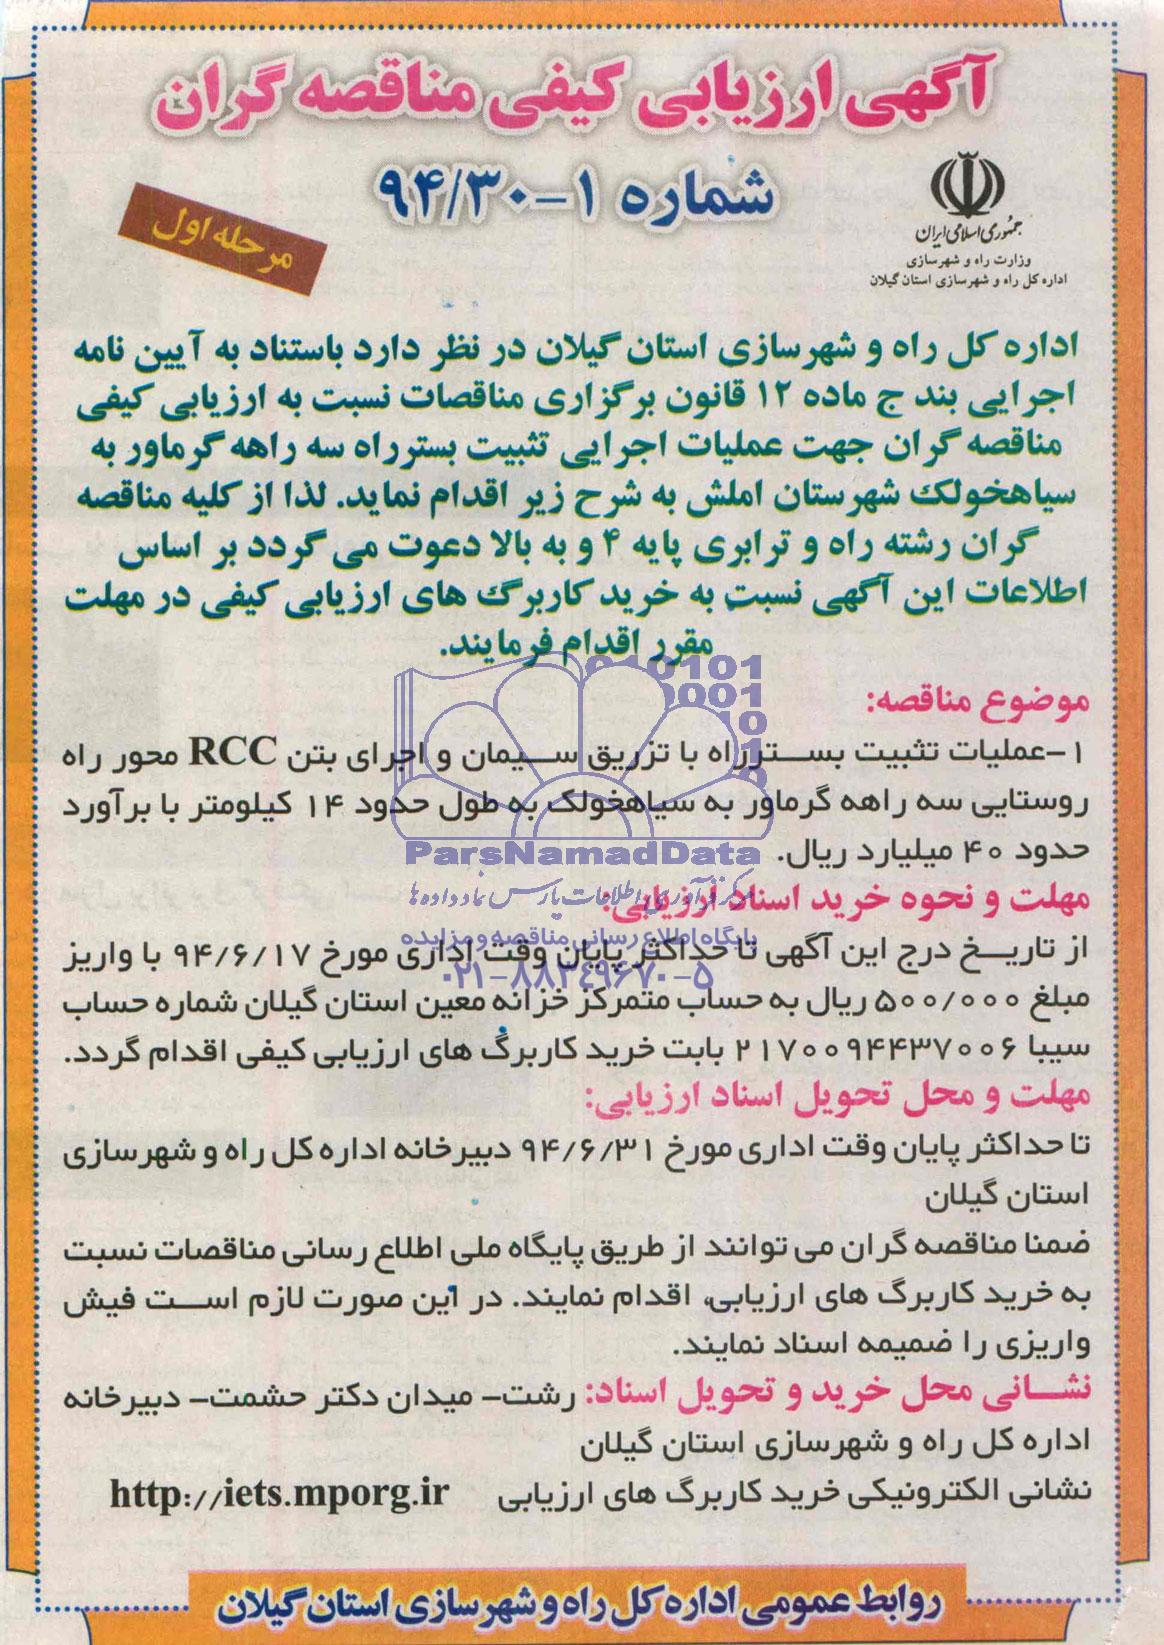 آگهی ارزیابی کیفی مناقصه گران
شماره ۱-۹۴/۳۰
مرحله اول
جمهوری اسلامی ایران
وزارت راه و شهرسازی
اداره کل راه و شهرسازی استان گیلان
اداره کل راه و شهرسازی استان گیلان در نظر دارد باستناد به آیین نامه
اجرایی بند ج ماده ۱۲ قانون برگزاری مناقصات نسبت به ارزیابی کیفی
مناقصه گران جهت عملیات اجرایی تثبیت بسترراه سه راهه گرماور به
سیاهخولک شهرستان املش به شرح زیر اقدام نماید. لذا از کلیه مناقصه
گران رشته راه و ترابری پایه ۴ و به بالا دعوت می گردد بر اساس
اطلاعات این آگهی نسبت به خرید کاربرگ های ارزیابی کیفی در مهلت
مقرر اقدام فرمایند.
موضوع مناقصه:
۱-عملیات تثبیت بسترراه با تزریق سیمان و اجرای بتن RCC محور راه
روستایی سه راهه گرماور به سیاهخولک به طول حدود ۱۴ کیلومتر با برآورد
حدود ۴۰ میلیارد ریال.
ParsNamadData
مرکز فرآوری اطلاعات پارس نماد داده ها
مهلت و نحوه خرید اسناد ارزیابی:
پایگاه اطلاع رسانی مناقصه و مزایده
از تاریخ درج این آگهی تا حداکثر پایان وقت اداری مورخ ۹۴/۶/۱۷ با واریز
۰۲۱-۸۸۳۴۹۶۷۰-۵
مبلغ ۵۰۰/۰۰۰ ریال به حساب متمرکز خزانه معین استان گیلان شماره حساب
سیبا ۲۱۷۰۰۹۴۴۳۷۰۰۶ بابت خرید کاربرگ های ارزیابی کیفی اقدام گردد.
مهلت و محل تحویل اسناد ارزیابی:
تا حداکثر پایان وقت اداری مورخ ۹۴/۶/۳۱ دبیرخانه اداره کل راه و شهرسازی
استان گیلان
ضمنا مناقصه گران می توانند از طریق پایگاه ملی اطلاع رسانی مناقصات نسبت
به خرید کاربرگ های ارزیابی، اقدام نمایند. در این صورت لازم است فیش
واریزی را ضمیمه اسناد نمایند.
نشانی محل خرید و تحویل اسناد: رشت- میدان دکتر حشمت- دبیرخانه
اداره کل راه و شهرسازی استان گیلان
نشانی الکترونیکی خرید کاربرگ های ارزیابی http://iets.mporg.ir
روابط عمومی اداره کل راه و شهرسازی استان گیلان